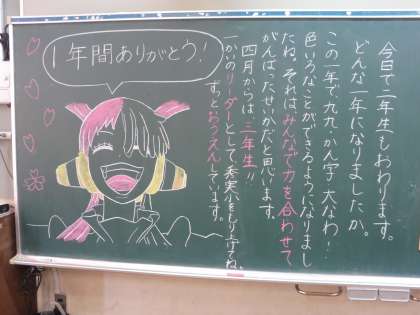 今日で二年生もおわります。
どんな一年になりましたか。
この一年で、九九、かん字、大なわ！
色いろなことができるようになりまし
たね。それはみんなで力を合わせて
がんばったせいかだと思います。
四月からは、三年生！！
一かいのリーダーとして、秀実小をもり上げてね。
ずっとおうえんしています。
1年間ありがとう！